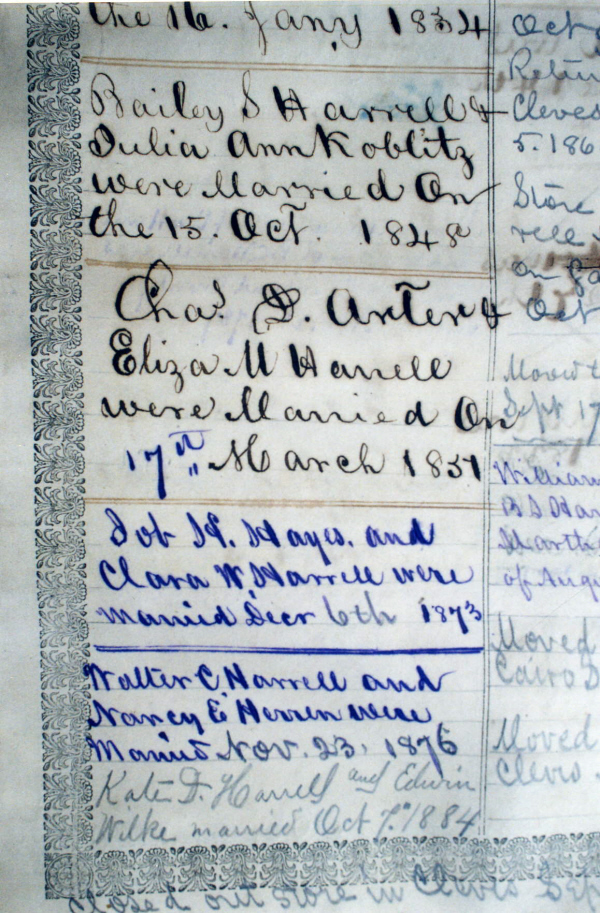 the 16. Jany 1834
Bailey S Harrell &
Julia Ann Koblitz
were Married On
the 15. Oct. 1848
Chas. D. Arter &
Eliza M Harrell
were Married On
17th March 1851
Job H. Hayes. and
Clara W. Harrell were
married Decr 6th 1873
Walter C Harrell and
Nancy E Herren were
Married Nov. 23. 1876
Kate D. Harrell and Edwin
Wilke married Oct 7th 1884
Closed out store in Cleves Sep
Oct
Cleves
5. 186
Store
rell
on
Oct
Moved t
Sept 17
William
B S Har
Martha
of Augu
Moved
Cairo
Moved
Cleves.